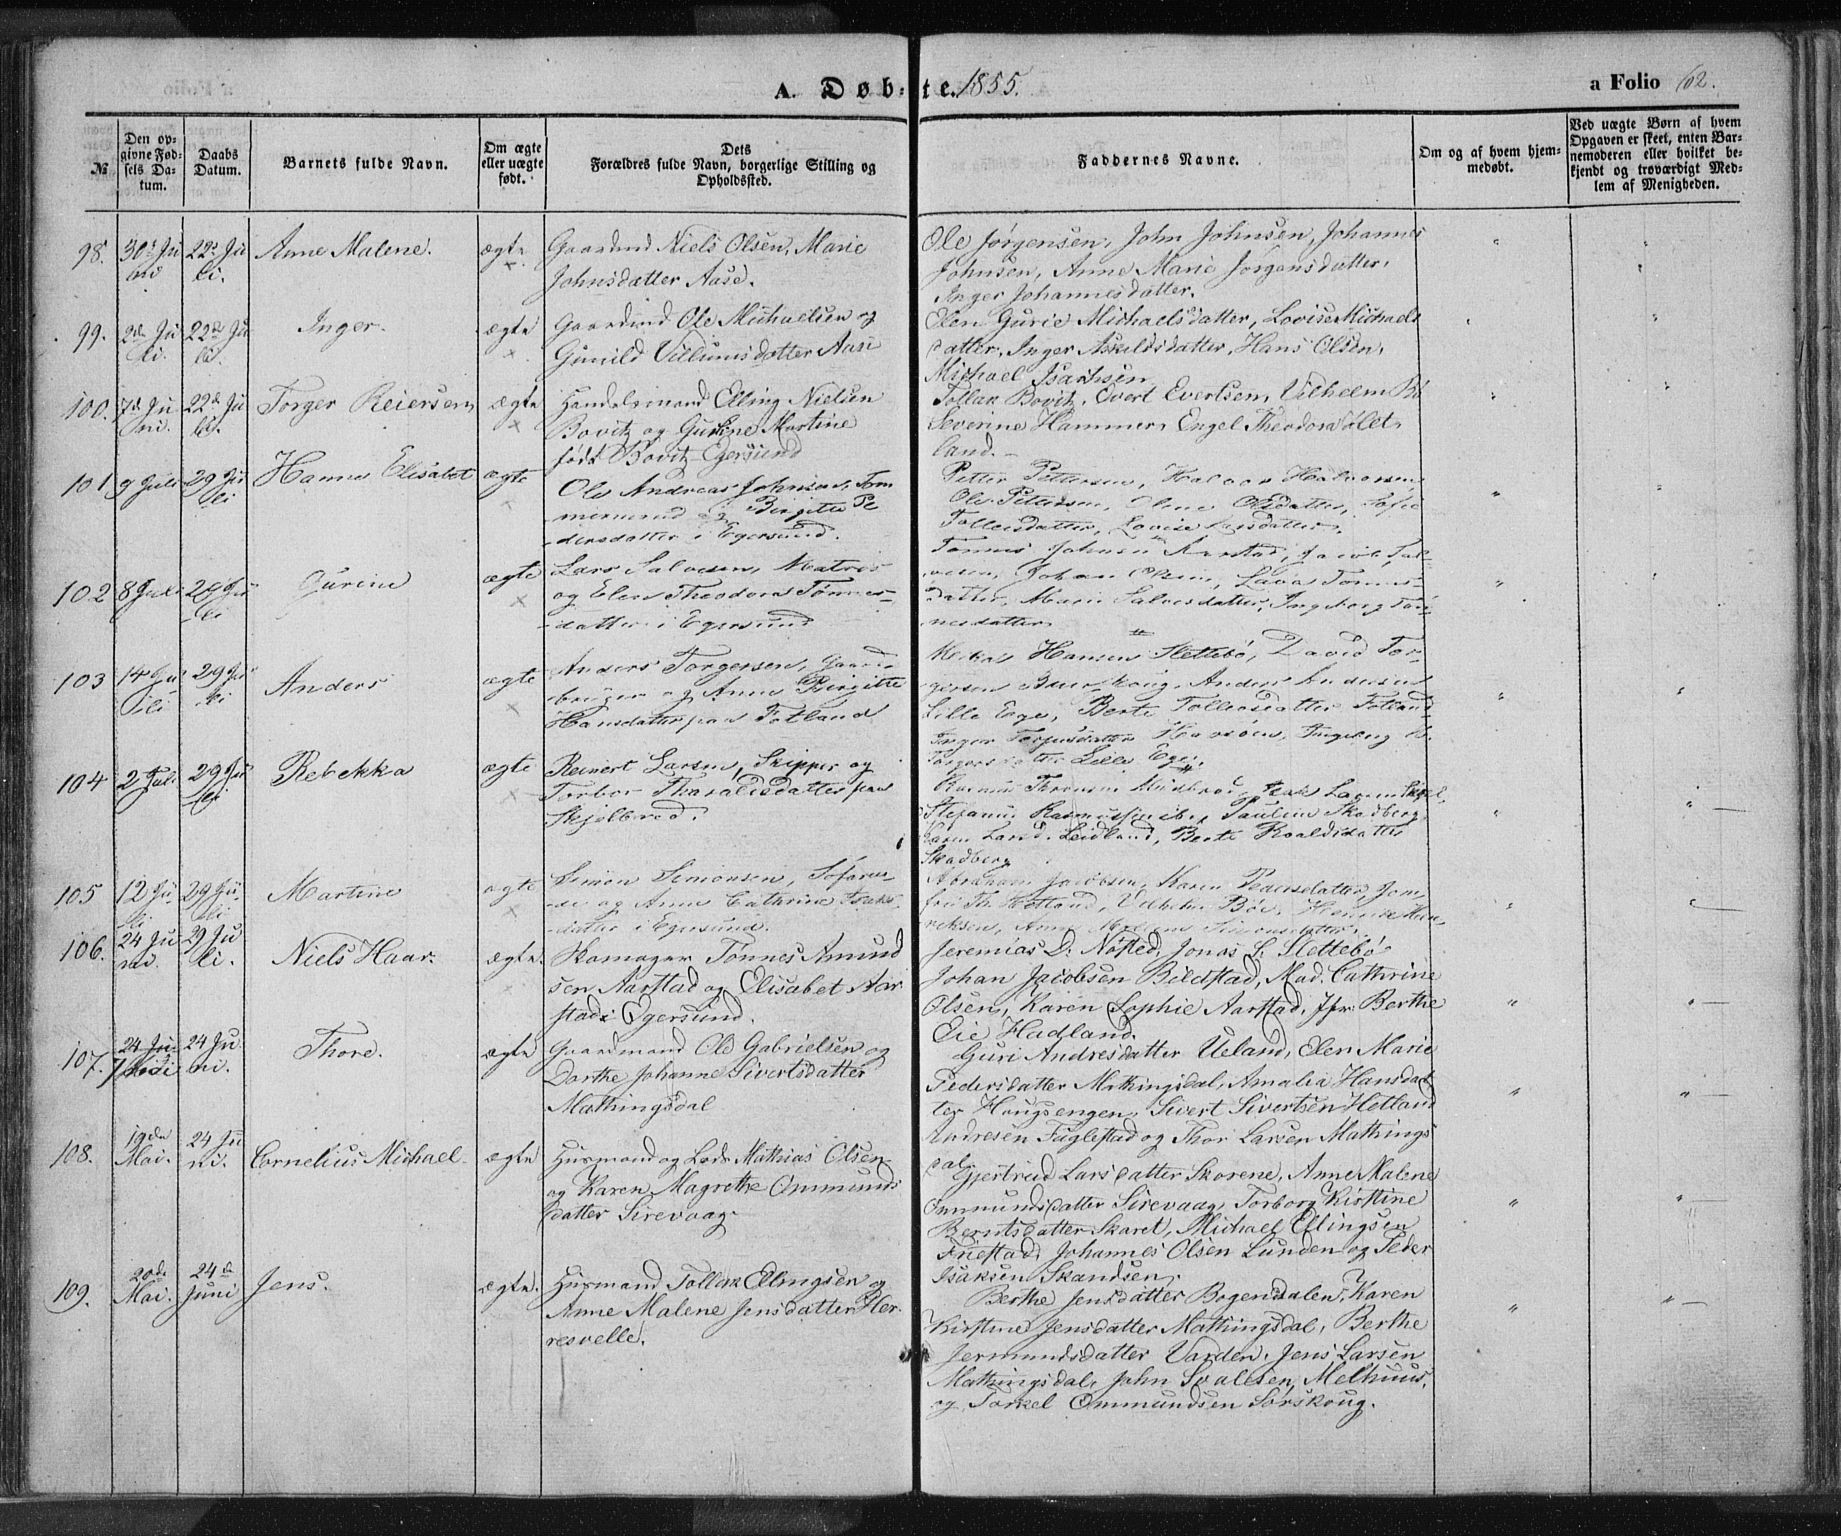 A. Døb-te. 1855.
a Folio 62.
№
Den op-
givne Fød-
sels Da-
tum.
Daabs
Datum.
Barnets fulde Navn.
Om ægte
eller uægte
født.
Dets
Forældres fulde Navn, borgerlige Stilling og
Opholdssted.
Faddernes Navne.
Om og af hvem hjem-
medøbt.
Ved uægte Børn af hvem
Opgaven er skeet, enten Bar-
nemoderen eller hvilket be-
kjendt og troværdigt Med-
lem af Menigheden.
98. 30te Ju
ni 22de Ju
li. Anne Malene. ægte
Gaardmd Niels Olsen, Marie
Johnsdatter Aase.
Ole Jørgensen, John Johnsen, Johannes
Johnsen, Anne Marie Jørgensdatter,
Inger Johannesdatter.
99. 2de Ju
li. 22de Ju
li. Inger. ægte
Gaardmd Ole Michaelsen og
Gunild Villumsdatter Aase
Elen Gurie Michaelsdatter, Lovise Michaels
datter, Inger Askildsdatter, Hans Olsen,
Michael Isachsen
100. 7de Ju
ni. 22de Ju
li. Torger Reiersen ægte
Handelsmand Elling Nielsen
Bovitz og Gurine Martine
født Bovitz Egersund
Tollak Bovitz, Evert Evertsen, Vilhelm Bö
Severine Hammer, Engel Theodora
land.
101 9 Juli 29 Ju
li Hanna Elisabet ægte
Ole Andreas Johnsen, Töm
mermand og Birgitte Pe
dersdatter i Egersund.
Petter Pettersen, Halvor Halvorsen
Ole Petersen, Olsdatter, Sofie
Tollesdatter, Lovise Larsdatter.
102 8 Juli 29 Ju
li Gurine ægte
Lars Salvesen, Matros
og Elen Theodora Tønnes-
datter i Egersund
Tønnes Johnsen Aarstad, Jacob Sal
vesen, Johan Olsen, Tønnes
datter, Marie Salvesdatter, Ingeborg Tøn
nesdatter
103 14 Ju
li 29 Ju
li Anders ægte
Anders Torgersen, Gaard
bruger og Anne Birgitte
Hansdatter paa Fotland
Hansen Slettebö, David Tor-
gersen Anders Andersen
Lille Eege, Berte Tollevsdatter Fotland,
Inger Ingeborg
Torgersdatter Lille Eege.
104 2 Juli 29 Ju
li Rebekka ægte
Reinert Larsen, Skipper og
Torbor Tharaldsdatter paa
Skjelbred.
Larsen
Stefanus Rasmussen ib., Pauline Skadberg
Leidland, Berte Roaldsdatter
Skadberg
105 12 Ju
li 29 Ju
li Martine ægte
Simon Simonsen, Søfaren
de og Anne Cathrine
datter i Egersund.
Abraham Jacobsen, Karen Pedersdatter, Jom
fru Hetland, Vilhelm Böe, Henrik Hen
riksen, Anne Simonsdatter.
106. 24 Ju
ni. 29 Ju
li. Niels Haar. ægte.
Skomager Tönnes Amund
sen Aarstad og Elisabet Aar
stad i Egersund.
Jeremias D. Nøsted, Jonas S. Slettebö
Johan Jacobsen Bildstad, Mad. Cathrine
Olsen, Karen Sophie Aarstad, Jfr. Berthe
Eie Hadland.
107. 24 Ju
7 Mai 24 Ju
ni. Thore. ægte
Gaardmand Ole Gabrielsen og
Dorthe Johanne Sivertsdatter
Mathingsdal
Guri Andresdatter Ueland, Elen Marie
Pedersdatter Mathingsdal, Amalia Hansdat
ter Hougsengen, Sivert Sivertsen Hetland
Andresen Fuglestad og Thor Larsen Mathings
dal
108. 19de
Mai. 24 Ju
ni. Cornelius Michael. ægte
Husmand og Lods Mathias Olsen
og Karen Magrethe Ommunds
datter Sirevaag.
Gjertrud Larsdatter Skorene, Anne Malene
Ommundsdatter Sirevaag, Torborg Kirstine
Berntsdatter Skaret, Michael Ellingsen
Friestad, Johannes Olsen Lunden og Peder
Isaksen Skandsen.
109. 20de
Mai. 24de
Juni Jens. ægte.
Husmand Tollak Ellingsen og
Anne Malene Jensdatter Her
resvelle.
Berthe Jensdatter Bogendalen, Karen
Kirstine Jensdatter Mathingsdal, Berthe
Jermundsdatter Varden, Jens Larsen
Mathingsdal, John Svalesen, Melhuus,
og Torkel Ommundsen Sørskoug.